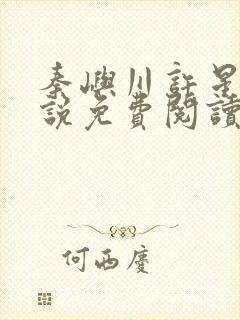 秦嶼川許是
說免費閱讀
何西慶